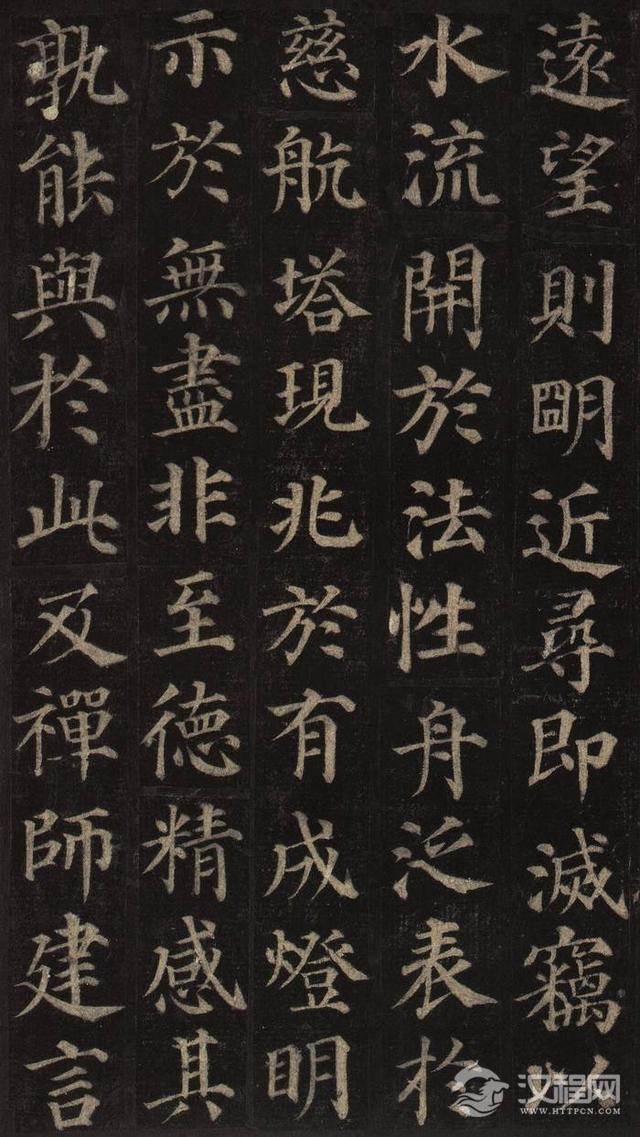 遠望則朙近尋即滅竊以
水流開於法性舟泛表於
慈航塔現兆於有成燈明
示於無盡非至德精感其
孰能與於此及禪師建言
汉程网
WWW.HTTPCN.COM